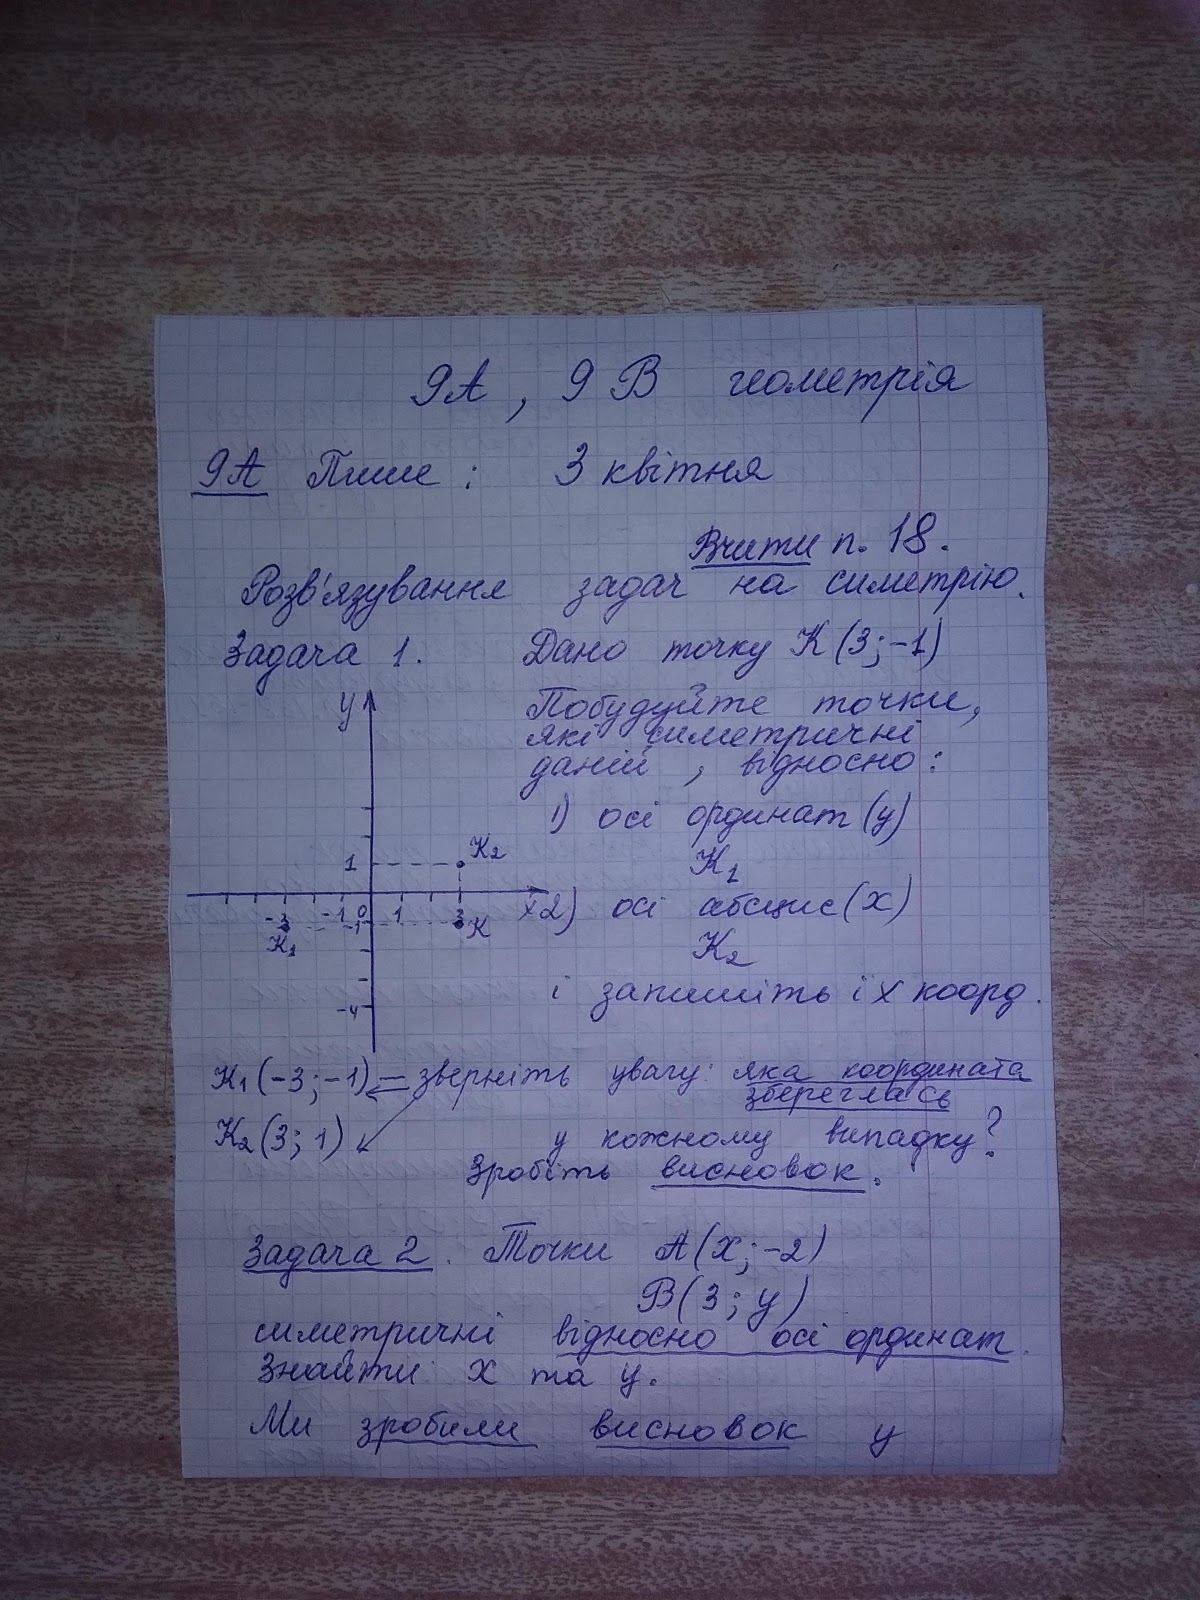 9А, 9В геометрія
9А Пише: 3 квітня
Вчити п. 18.
Розв'язування задач на симетрію.
Задача 1. Дано точку К(3;-1)
Побудуйте точки,
які симетричні
даній, відносно:
1) осі ординат (у)
К1
2) осі абсцис (х)
К2
і запишіть їх коорд.
у
1
К2
-3 -1 0 1 3 х
-1
К1
К
-4
К1(-3;-1) — зверніть увагу: яка координата
збереглась
К2(3;1) у кожному випадку?
Зробіть висновок.
Задача 2. Точки А(х;-2)
В(3;у)
симетричні відносно осі ординат.
Знайти х та у.
Ми зробили висновок у